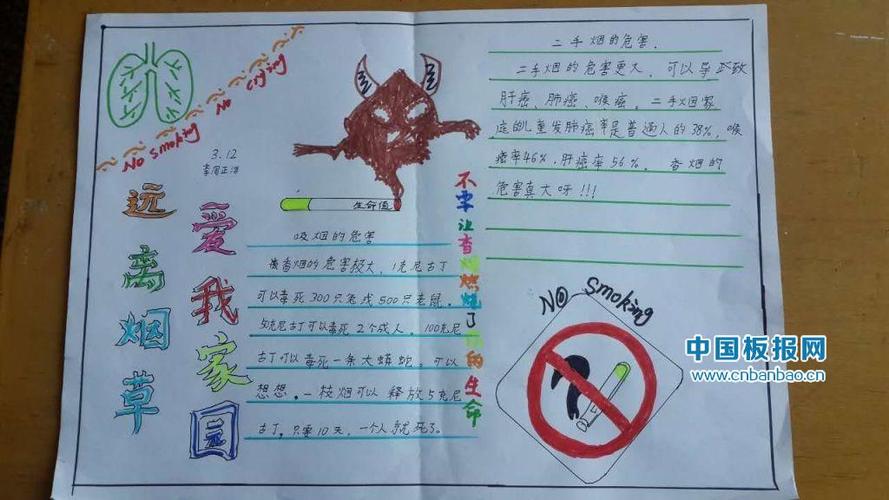 No smoking No crying
3.12
远离烟草
爱我家园
生命值
吸烟的危害
香烟的危害较大,1克尼古丁
可以毒死300只兔或500只老鼠。
5克尼古丁可以毒死2个成人。100克尼
古丁可以毒死一条大蟒蛇。可以
想想。一枝烟可以释放5克尼
古丁。只要10天,一个人就死了。
不要让香烟燃烧了你的生命
二手烟的危害.
二手烟的危害更大,可以导致
肝癌、肺癌、喉癌。二手烟家
庭的儿童发肺癌率是普通人的38%,喉
癌率46%,肝癌率56%。香烟的
危害真大呀!!!
No smoking
中国板报网
www.cnbanbao.cn